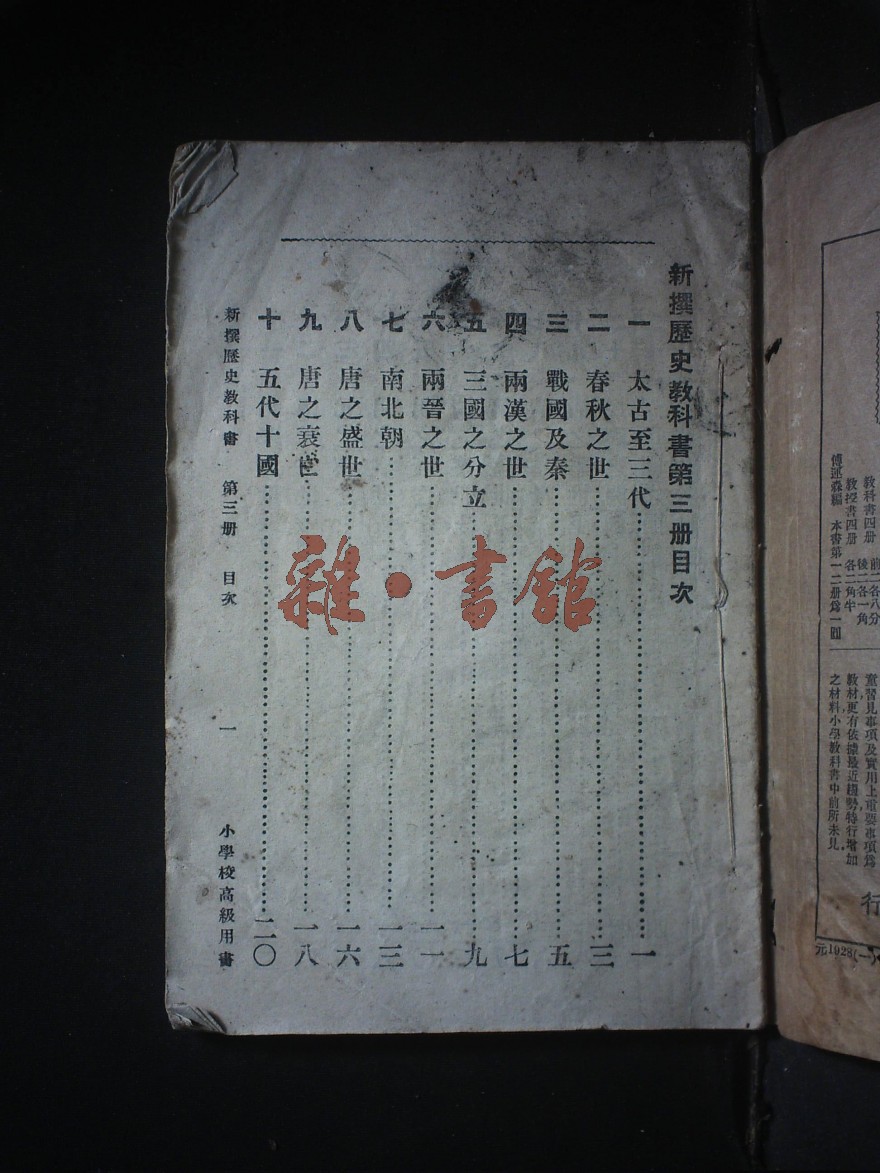 新撰歷史教科書第三册目次
一 太古至三代……一
二 春秋之世……三
三 戰國及秦……五
四 兩漢之世……七
五 三國之分立……九
六 兩晉之世……一一
七 南北朝……一三
八 唐之盛世……一六
九 唐之衰世……一八
十 五代十國……二〇
新撰歷史教科書 第三册 目次 一 小學校高級用書
雜·書館
教科書四册 前二各八分 後二各一角
教授書四册 各二角半
傅運森編 本書第一二册爲一圓
童習見事項及實用上重要事項爲
教材,更有依據最近趨勢特行增加
之材料,小學教科書中前所未見,
行
元1928(一)